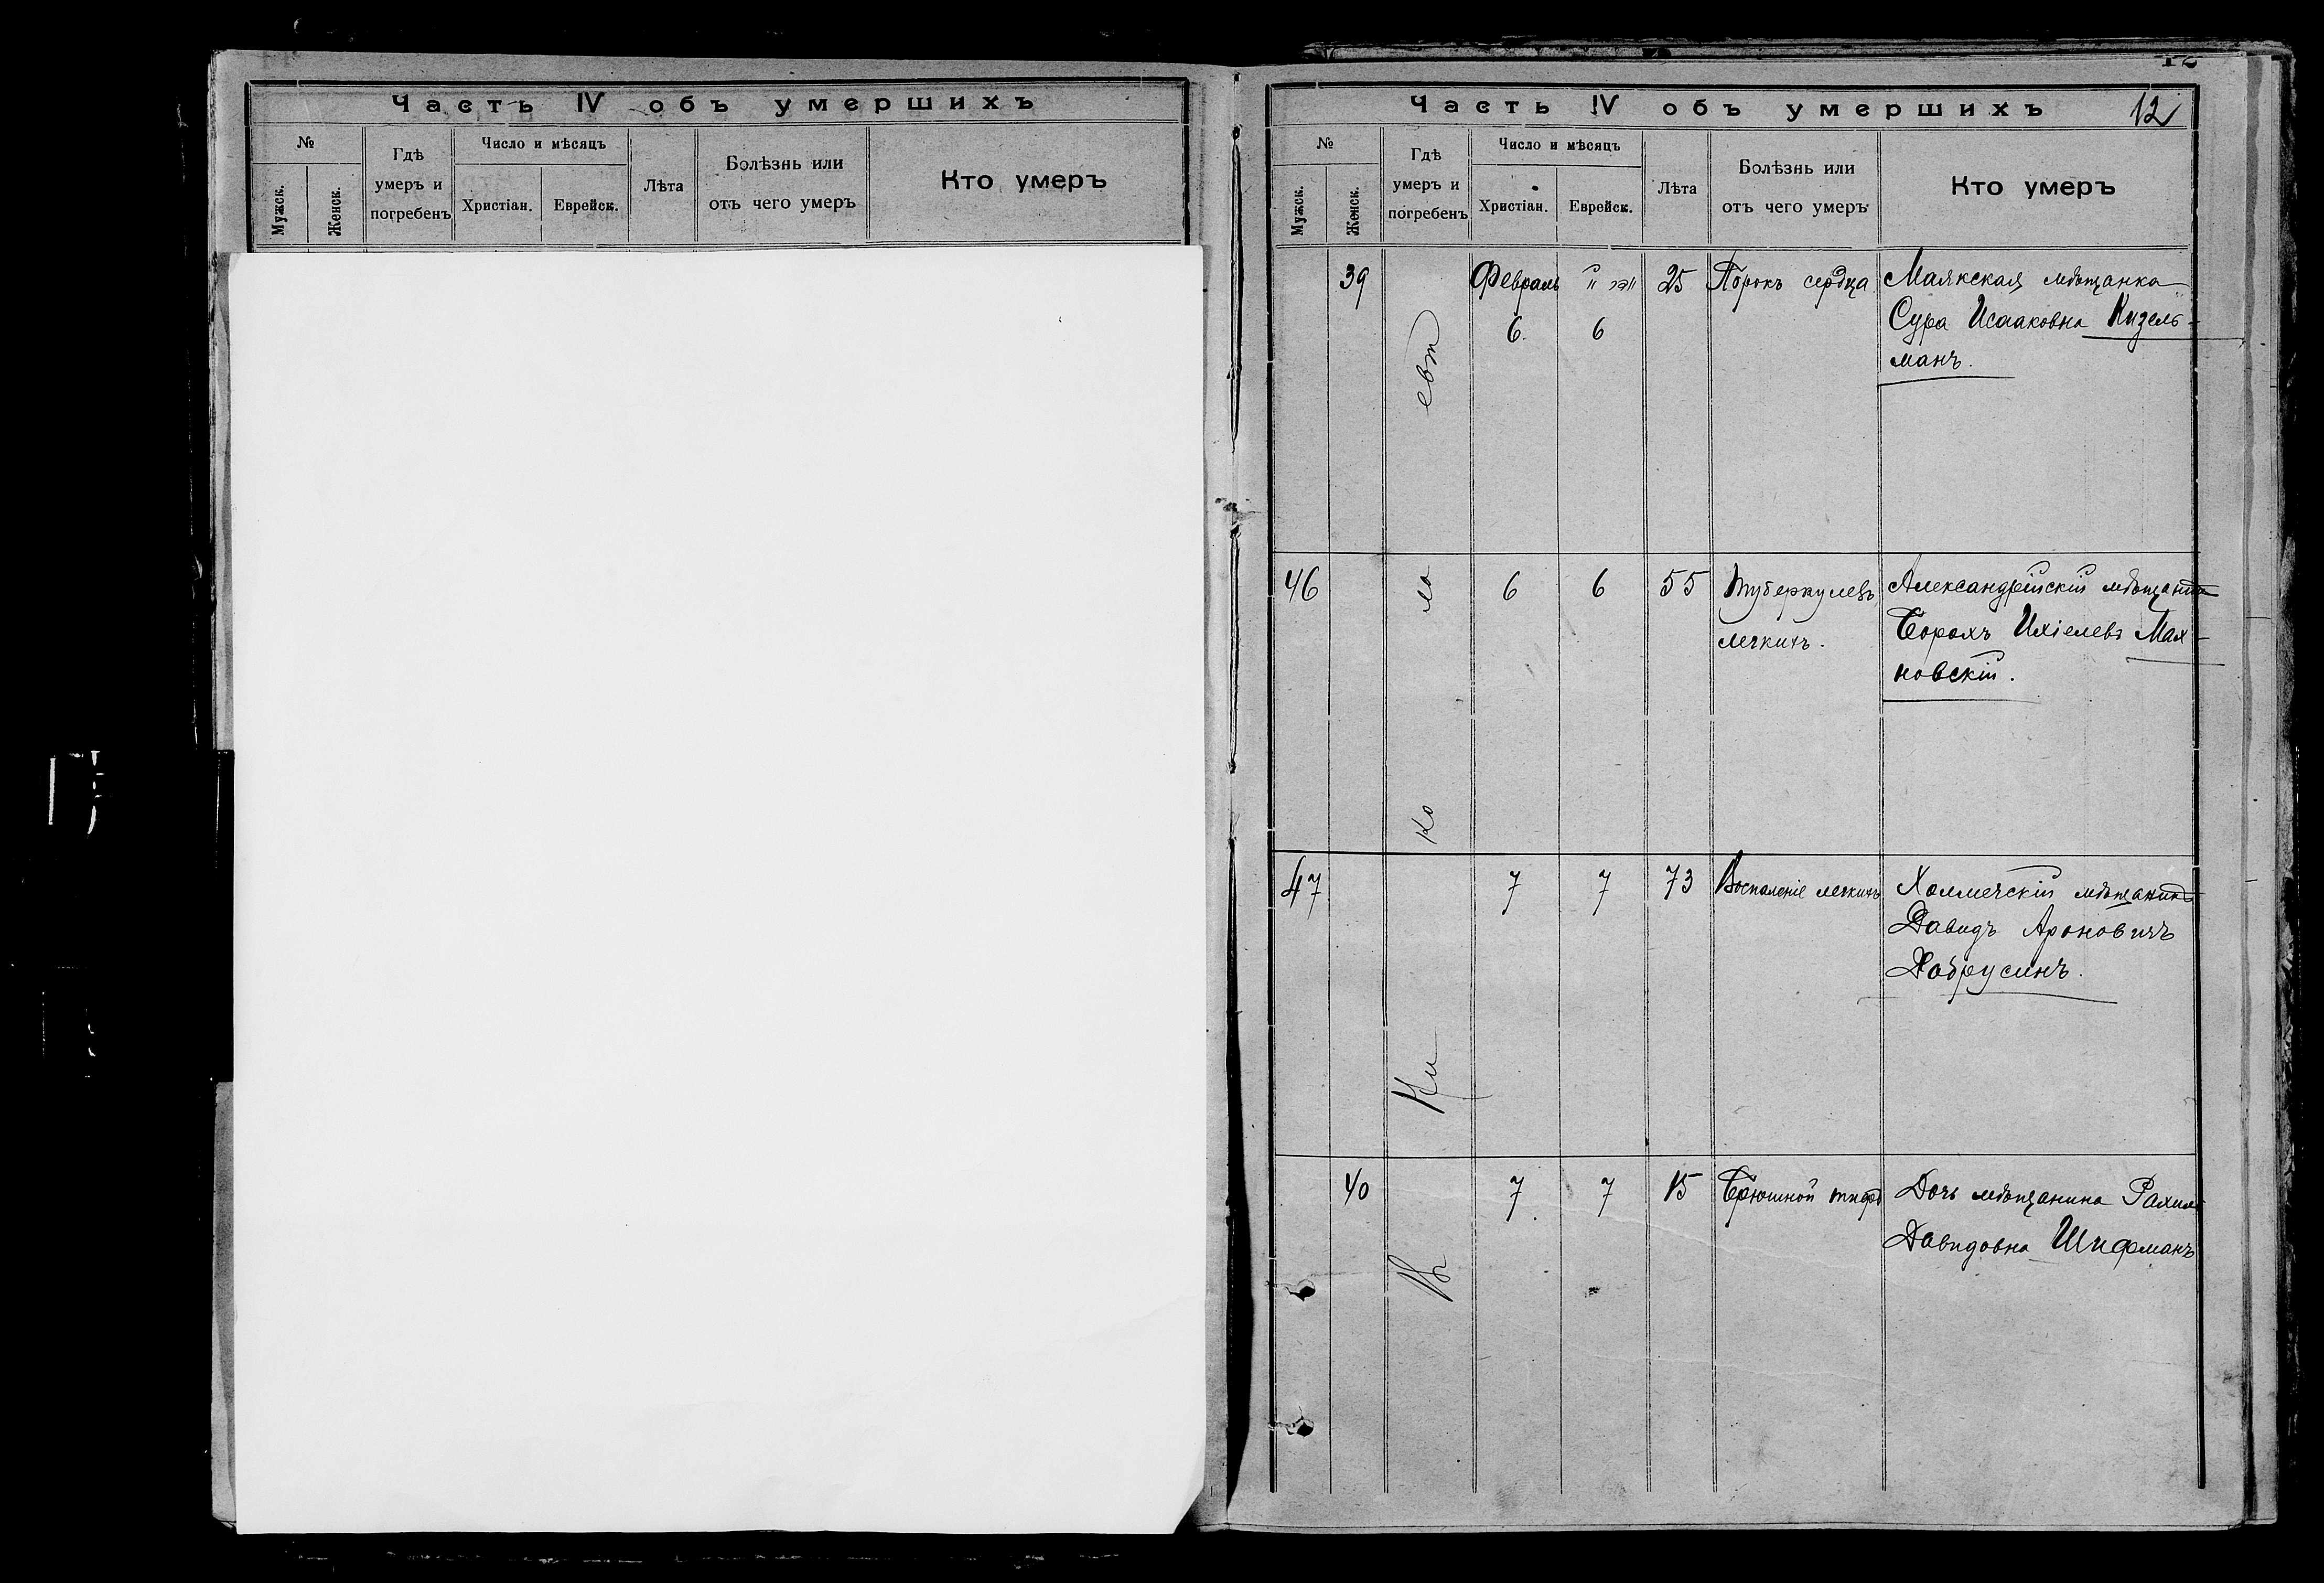 Часть IV объ умершихъ
№
Мужск.
Женск.
Гдѣ
умеръ и
погребенъ
Число и мѣсяцъ
Христіан.
Еврейск.
Лѣта
Болѣзнь или
отъ чего умеръ
Кто умеръ
12
Часть IV объ умершихъ
12
№
Мужск.
Женск.
Гдѣ
умеръ и
погребенъ
Число и мѣсяцъ
Христіан.
Еврейск.
Лѣта
Болѣзнь или
отъ чего умеръ
Кто умеръ
39
Февраль
6
6
25
Порокъ сердца
Маякская мѣщанка
Сура Исааковна Кизель-
манъ.
46
6
6
55
Туберкулезъ
легкихъ.
Александрійскій мѣщанинъ
Борохъ Ихіелевъ Мах-
новскій.
47
7
7
73
Воспаленіе легкихъ
Холмечскій мѣщанинъ
Давидъ Ароновичъ
Добрусинъ.
40
7
7
15
Брюшной тифъ
Дочь мѣщанина Рахиль
Давидовна Шифманъ